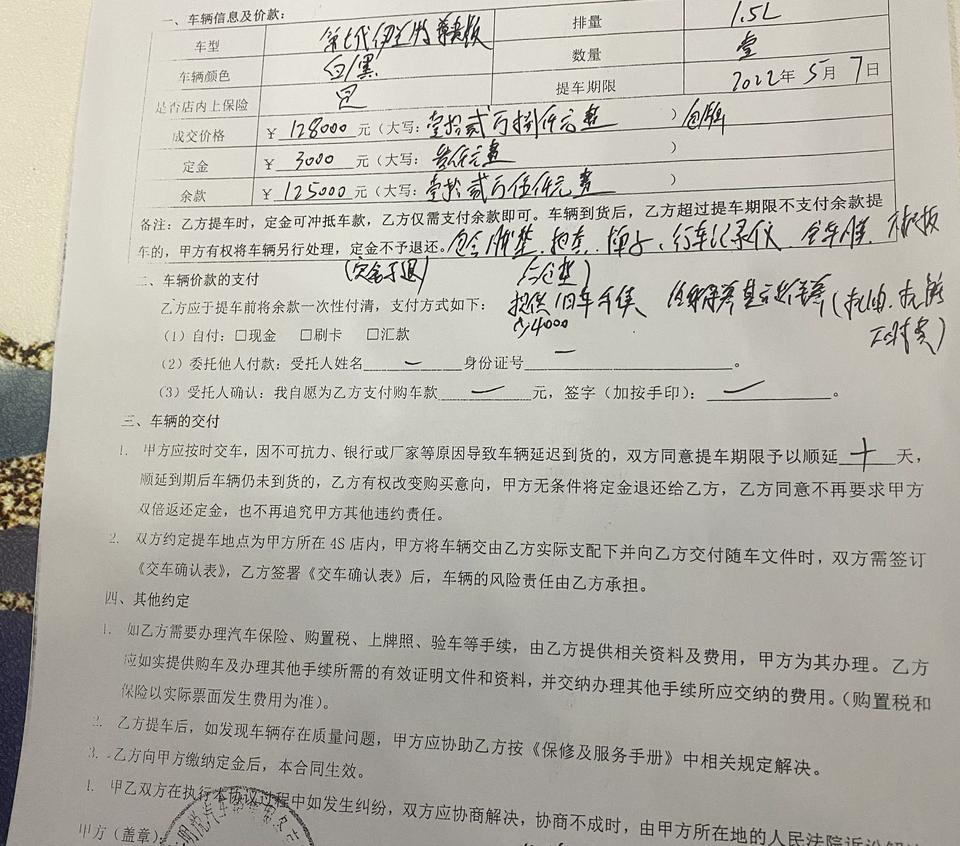 一、车辆信息及价款：
车型 第七代伊兰特 尊贵版 排量 1.5L
车辆颜色 白/黑 数量 壹
是否店内上保险 是 提车期限 2022年5月7日
成交价格 ￥128000元（大写：壹拾贰万捌仟元整）包牌
定金 ￥3000元（大写：叁仟元整）
余款 ￥125000元（大写：壹拾贰万伍仟元整）
备注：乙方提车时，定金可冲抵车款，乙方仅需支付余款即可。车辆到货后，乙方超过提车期限不支付余款提
车的，甲方有权将车辆另行处理，定金不予退还。包含脚垫、把套、行车记录仪、全车膜
（定金可退）
二、车辆价款的支付
乙方应于提车前将余款一次性付清，支付方式如下： 提供旧车
少4000
（1）自付：□现金 □刷卡 □汇款
（2）委托他人付款：受托人姓名 — 身份证号 — 。
（3）受托人确认：我自愿为乙方支付购车款 — 元，签字（加按手印）： — 。
三、车辆的交付
1. 甲方应按时交车，因不可抗力、银行或厂家等原因导致车辆延迟到货的，双方同意提车期限予以顺延 十 天，
顺延到期后车辆仍未到货的，乙方有权改变购买意向，甲方无条件将定金退还给乙方，乙方同意不再要求甲方
双倍返还定金，也不再追究甲方其他违约责任。
2. 双方约定提车地点为甲方所在4S店内，甲方将车辆交由乙方实际支配下并向乙方交付随车文件时，双方需签订
《交车确认表》，乙方签署《交车确认表》后，车辆的风险责任由乙方承担。
四、其他约定
1. 如乙方需要办理汽车保险、购置税、上牌照、验车等手续，由乙方提供相关资料及费用，甲方为其办理。乙方
应如实提供购车及办理其他手续所需的有效证明文件和资料，并交纳办理其他手续所应交纳的费用。（购置税和
保险以实际票面发生费用为准）。
2. 乙方提车后，如发现车辆存在质量问题，甲方应协助乙方按《保修及服务手册》中相关规定解决。
3. 乙方向甲方缴纳定金后，本合同生效。
4. 甲乙双方在执行本协议过程中如发生纠纷，双方应协商解决，协商不成时，由甲方所在地的人民法院诉讼解决
甲方（盖章）：